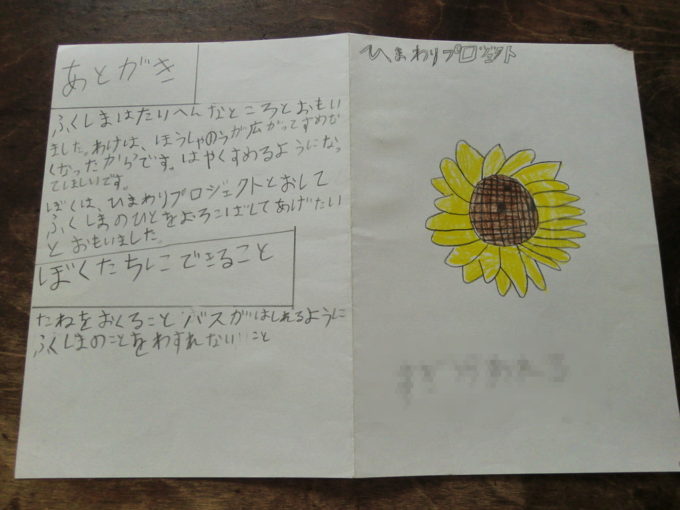 あとがき
ふくしまはたいへんなところとおもい
ました。わけは、ほうしゃのうが広がってすめな
くなったからです。はやくすめるようになっ
てほしいです。
ぼくは、ひまわりプロジェクトとおして
ふくしまのひとをよろこばしてあげたい
とおもいました。
ぼくたちにできること
たねをおくること バスがはしれるように
ふくしまのことをわすれないこと
ひまわりプロジェクト